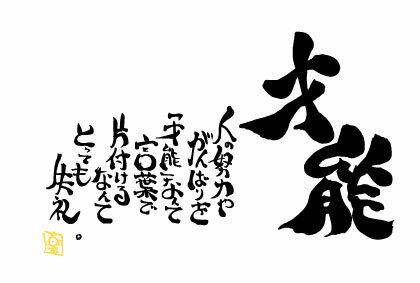 才能
人の努力や
がんばりを
「才能」なんて
言葉で
片付ける
なんて
とっても
失礼。